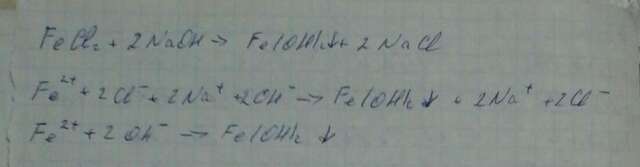 FeCl₂ + 2NaOH → Fe(OH)₂↓ + 2NaCl
Fe²⁺ + 2Cl⁻ + 2Na⁺ + 2OH⁻ → Fe(OH)₂↓ + 2Na⁺ + 2Cl⁻
Fe²⁺ + 2OH⁻ → Fe(OH)₂↓